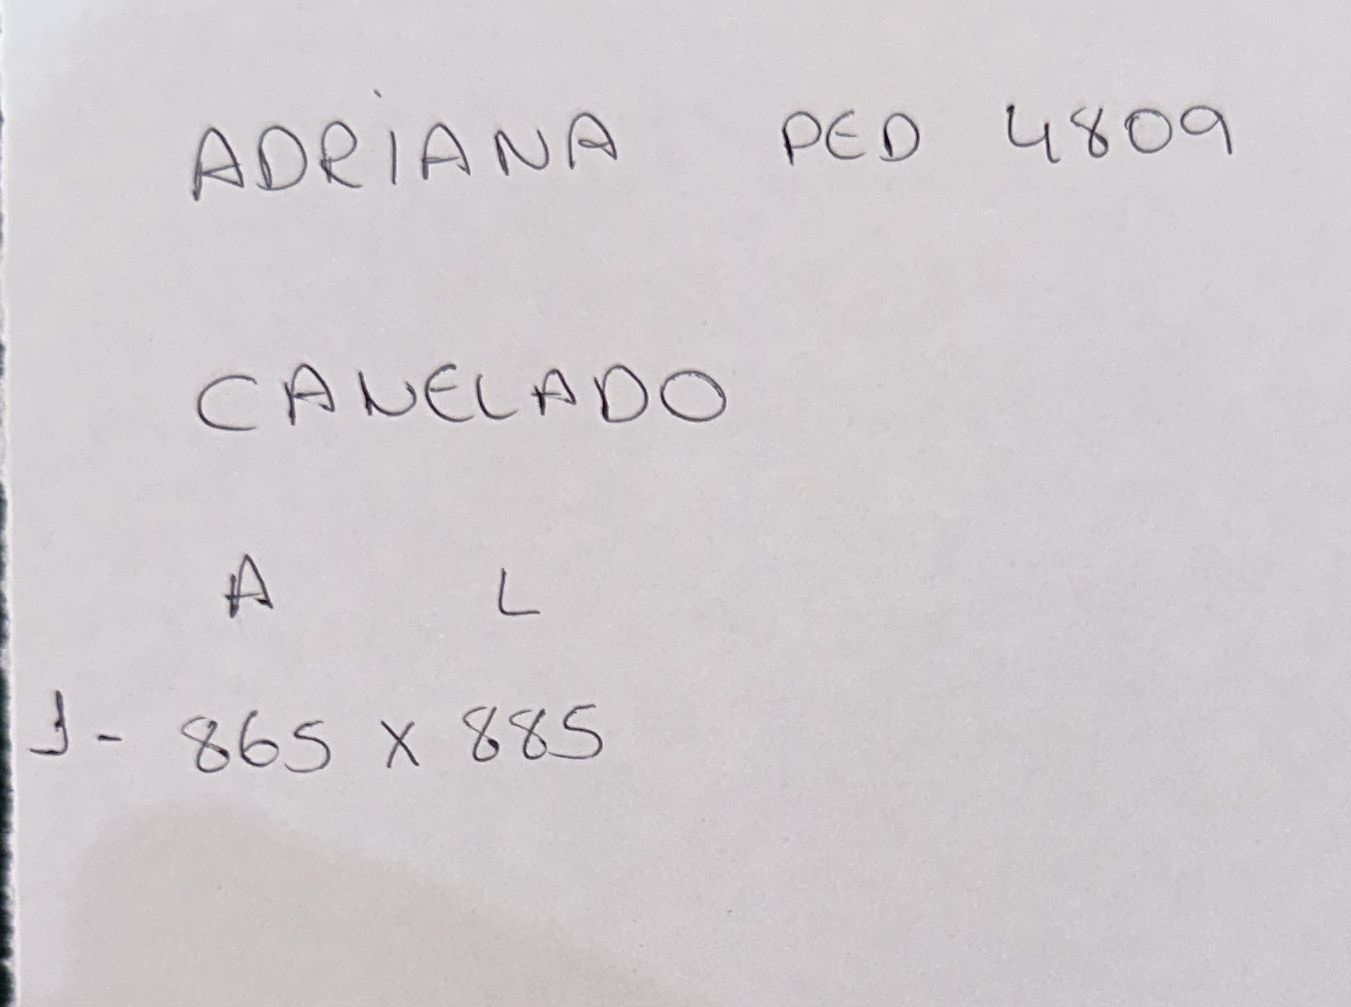 ADRiANA PED 4809
CANELADO
A L
1- 865 x 885